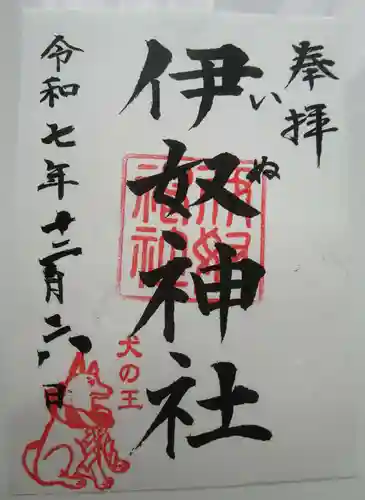 奉拝
伊奴神社
いぬ
令和七年十二月二八日
犬の王